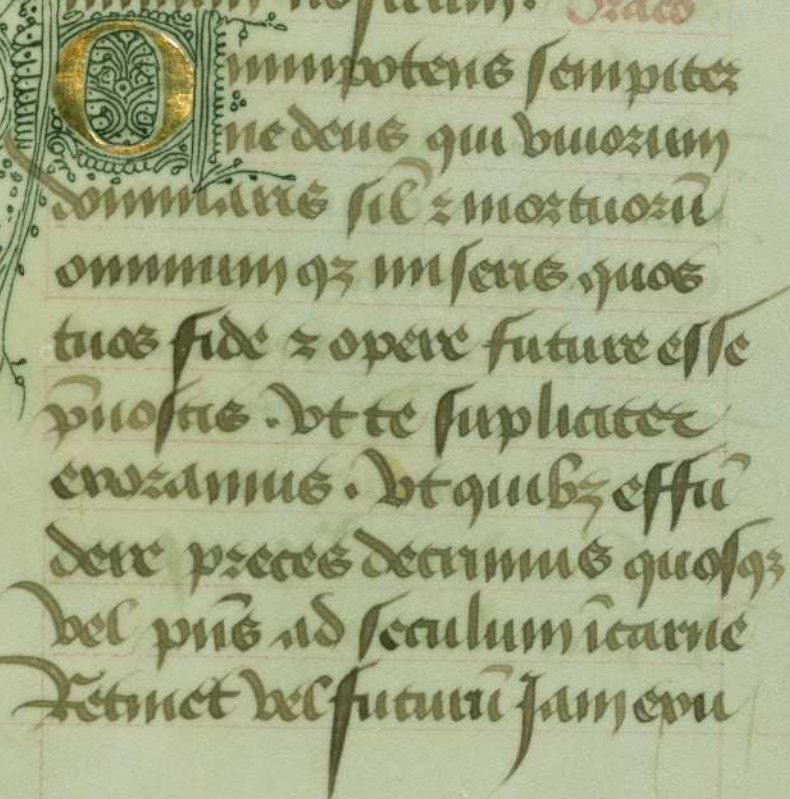 Oracō
Omnipotens sempiter
ne deus qui viuorum
dominaris sil̄ ⁊ mortuorū
omnium qꝫ misereris quos
tuos fide ⁊ opere future esse
p̄noscis . Vt te supliciter
exoramus . Vt quibꝫ effū
dere preces decriuimus quosqꝫ
vel pn̄s ad seculum ī carne
Retinet vel futurū Jam exu